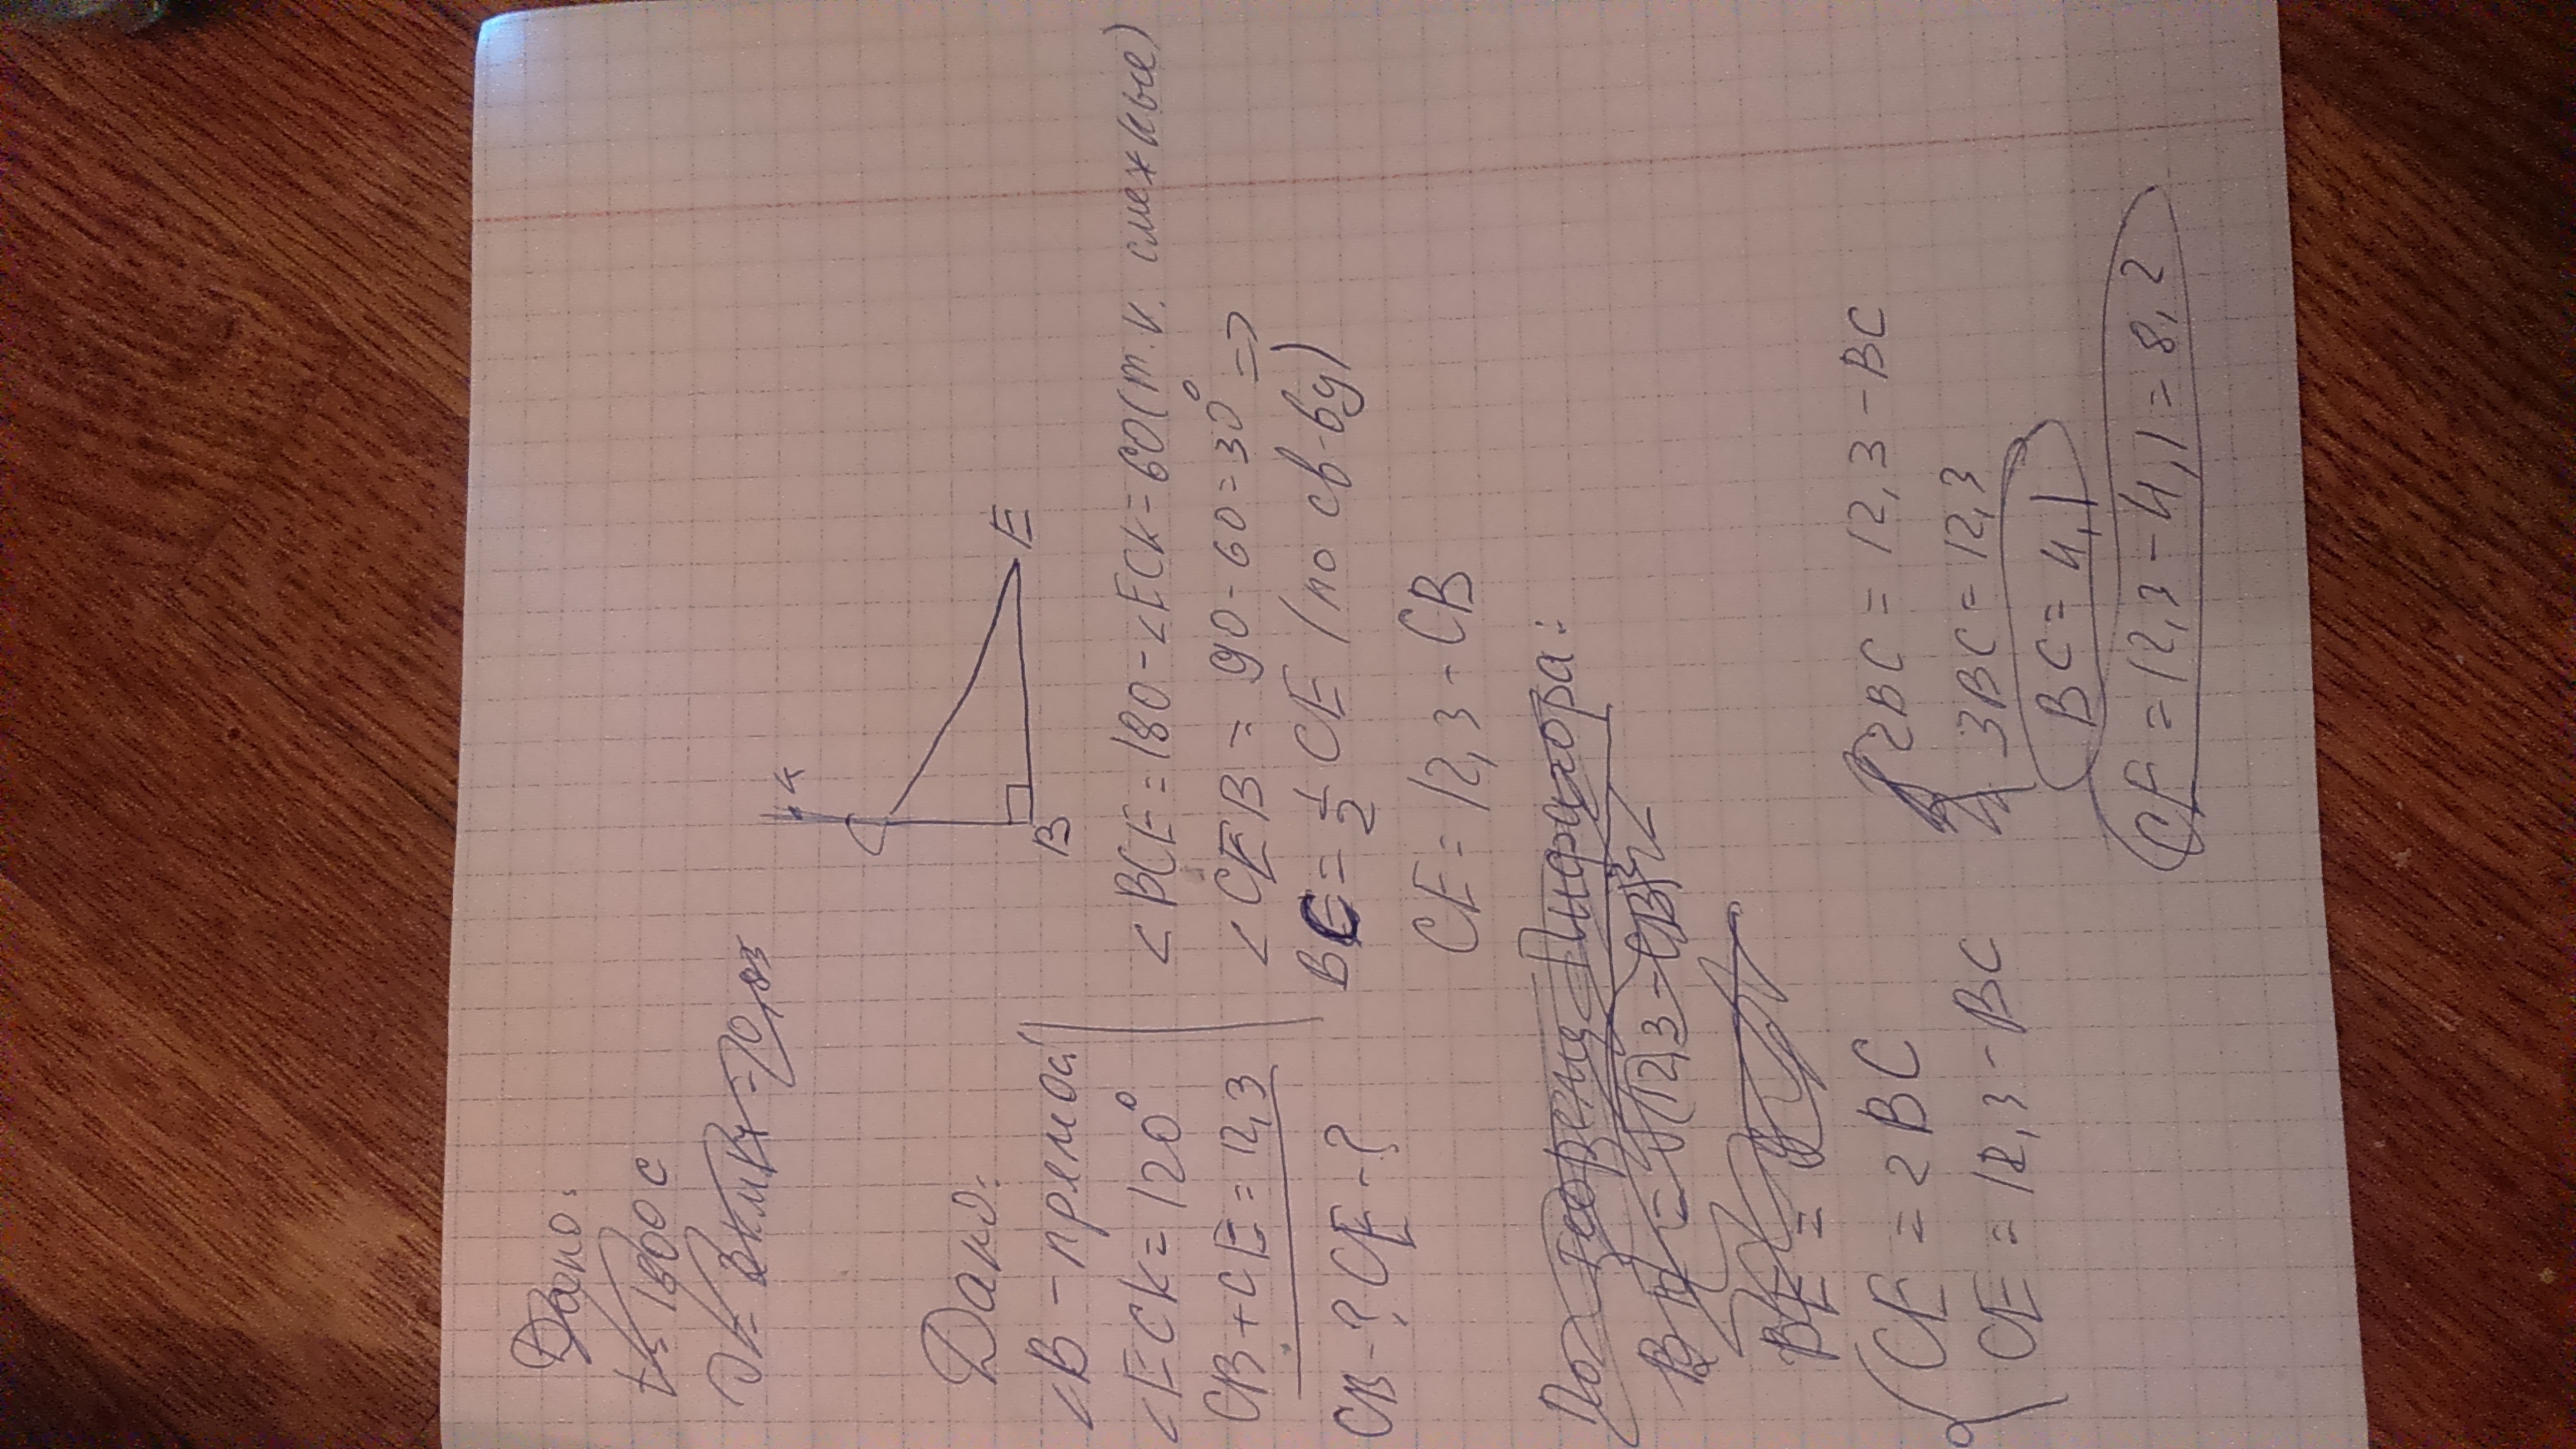 Дано:
t = 1800 c
Дано:
K
C
B
E
<B - прямой
<ECK = 120°
CB + CE = 12,3
CB - ? CE - ?
<BCE = 180 - <ECK = 60 (т.к. смежные)
<CEB = 90 - 60 = 30° =>
BC = 1/2 CE (по св-ву)
CE = 12,3 - CB
По теореме Пифагора:
BE =
CE = 2BC
CE = 12,3 - BC
2BC = 12,3 - BC
3BC = 12,3
BC = 4,1
CE = 12,3 - 4,1 = 8,2